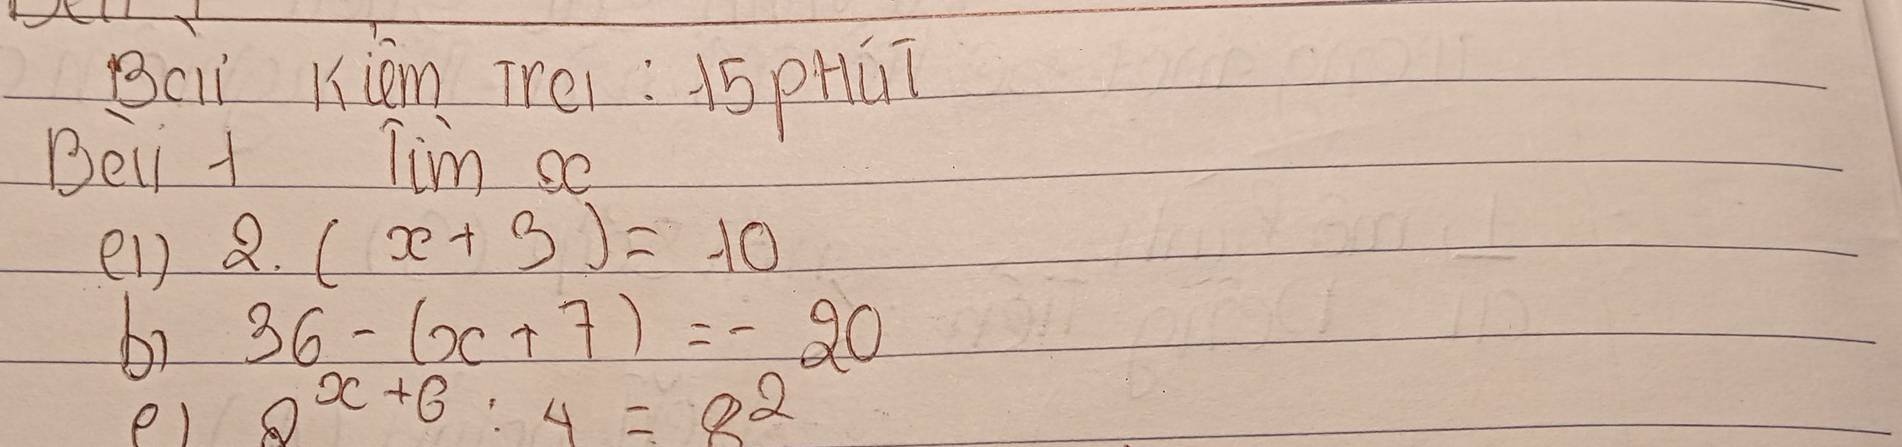 Bài Kiểm Tra : 15 pHúT
Bài 1 Tìm x
a) 2. ( x + 3 ) = 10
b) 36 - (x + 7) = - 20
c) 2^{x+6} : 4 = 8^2